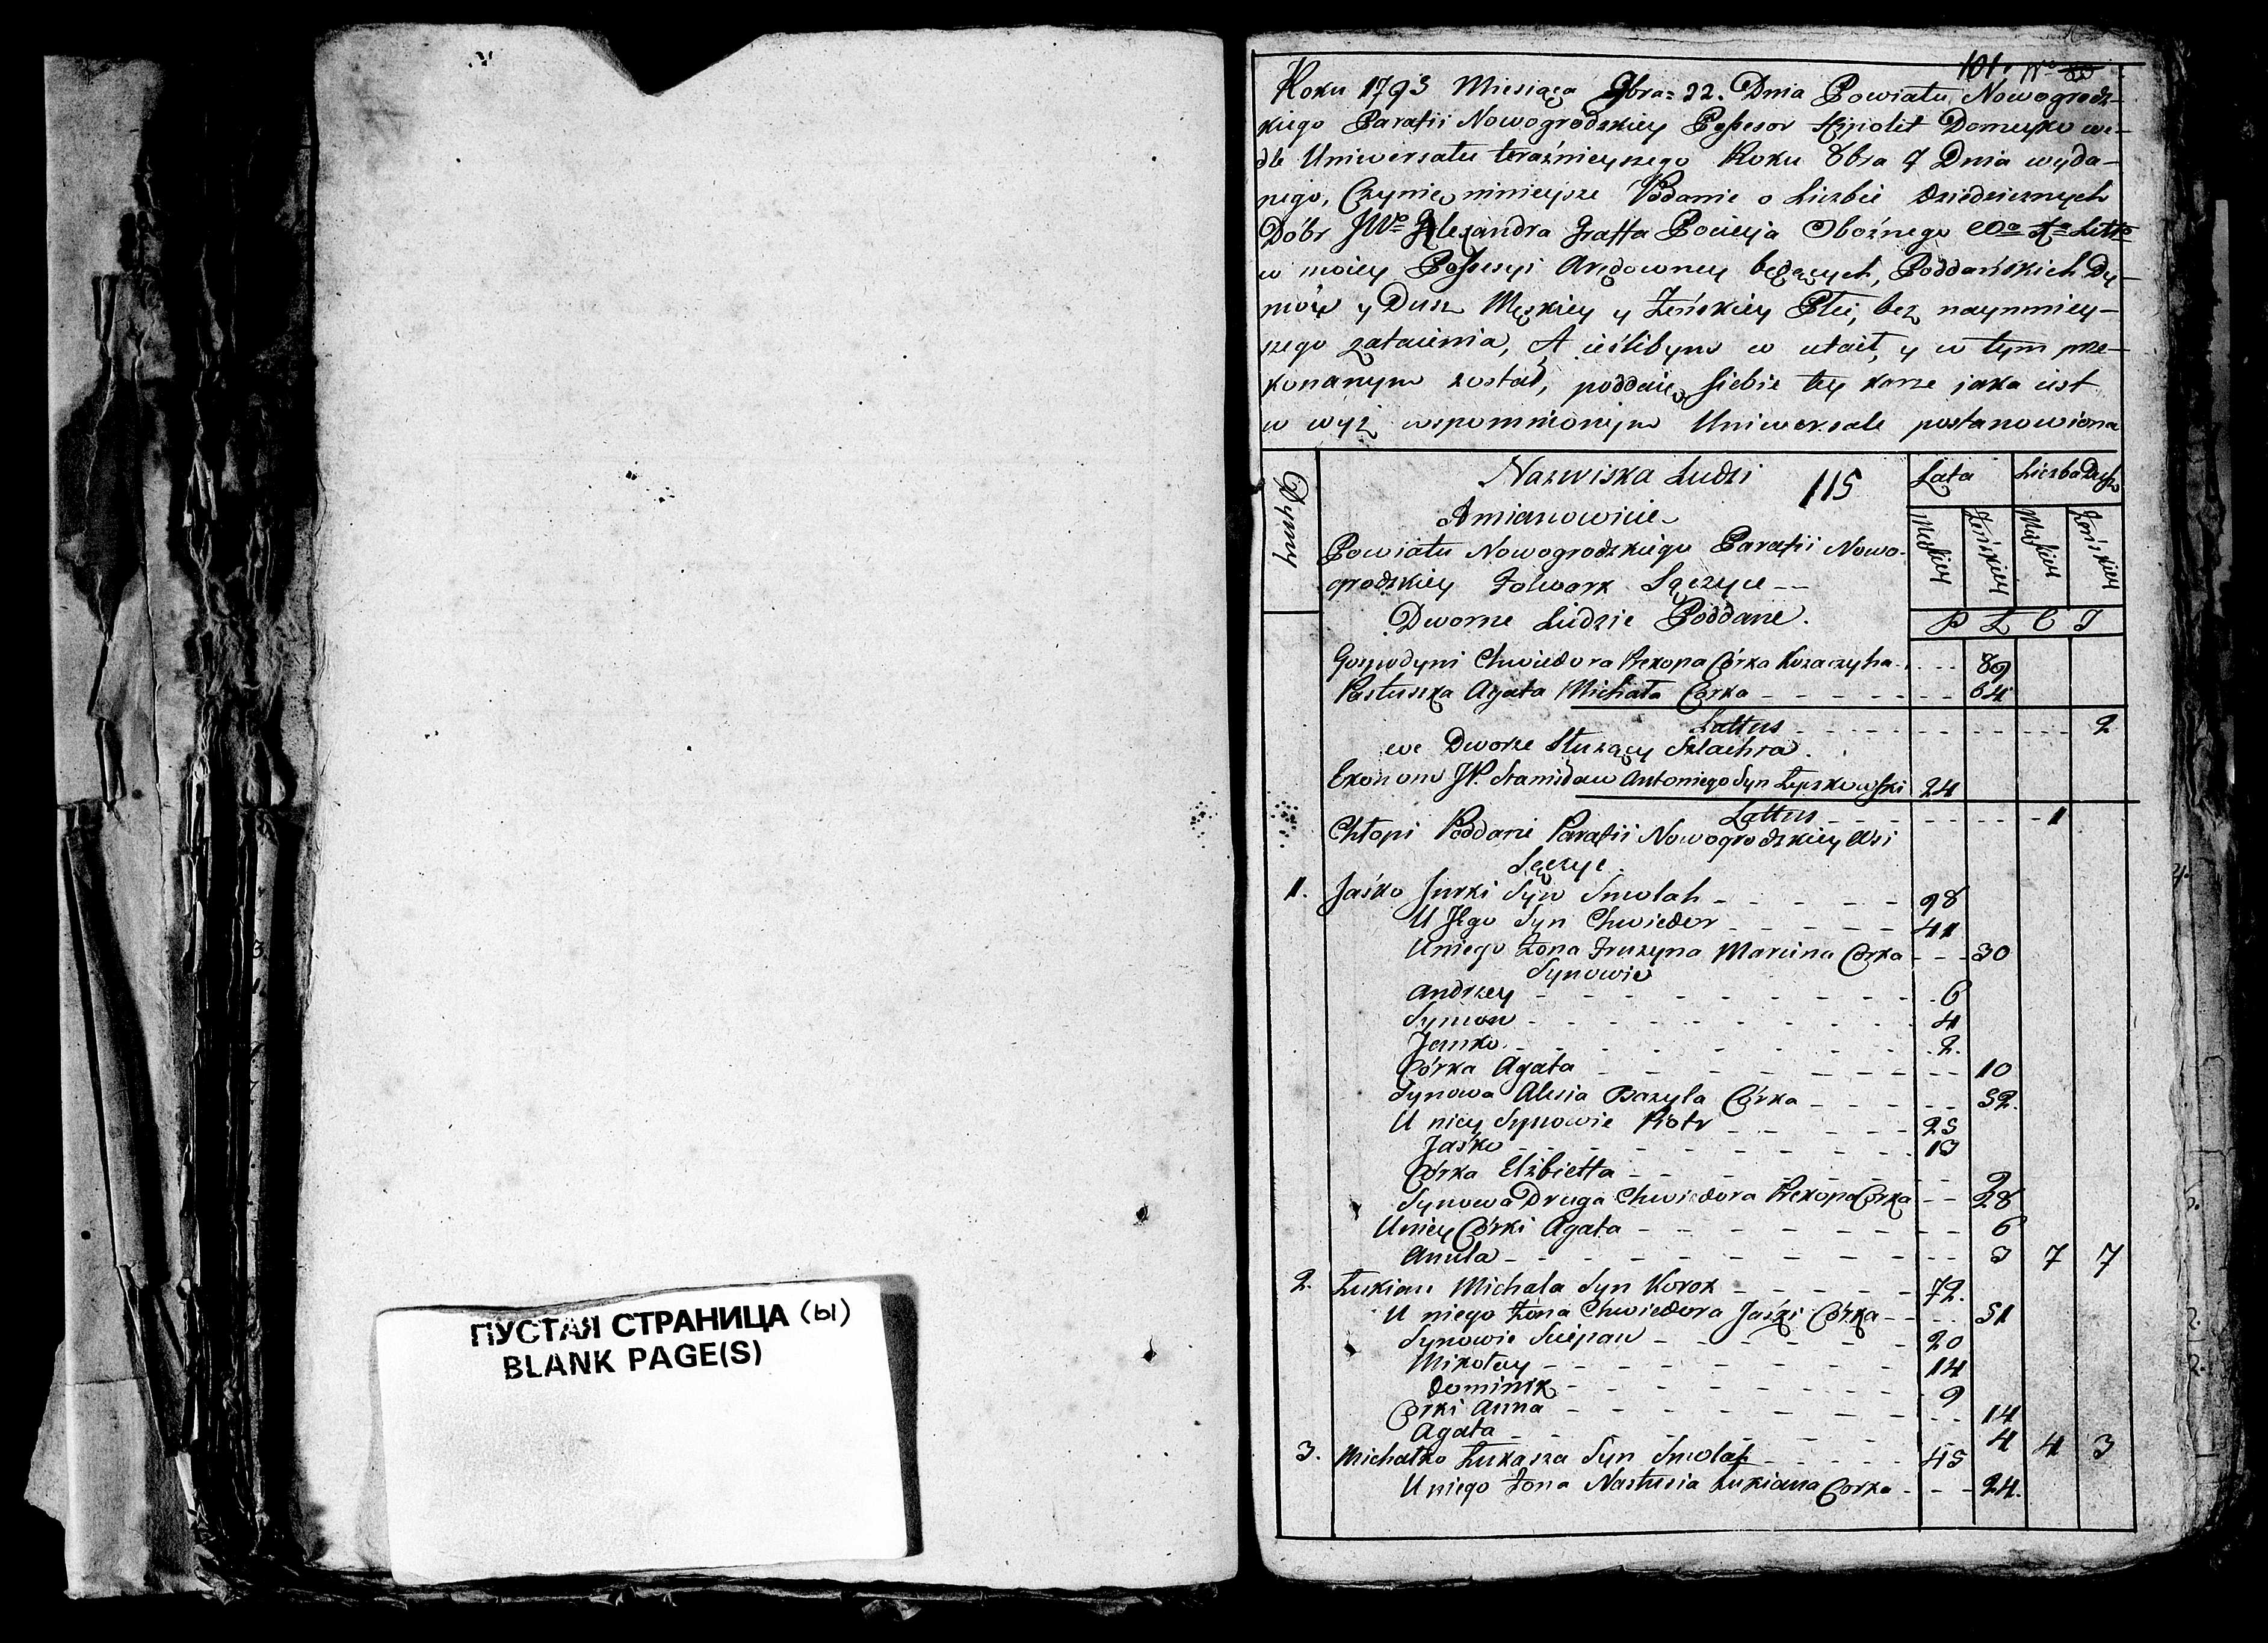 ПУСТАЯ СТРАНИЦА (ы)
BLANK PAGE(S)
101. No 80
Roku 1793 Miesiąca 9bra 22. Dnia Powiatu Nowogrodz-
kiego Parafii Nowogrodzkiey Possesor Hipolit Domeyko we-
dle Uniwersału teraźnieyszego Roku 8bra 7 Dnia wyda-
nego, Czynię ninieysze Podanie o Liczbie Dziedzicznych
Dóbr JWo Alexandra Graffa Pocieja Oboźnego Litt
w moiey Possesyi Arędowney będących, Poddańskich Dy-
mów y Dusz Męskiey y Żeńskiey Płci, bez naymniey-
szego zataienia, A ieślibym w utaił, y w tym prze-
konanym został, poddaię siebie tey karze jaka iest
w wyż wspomnionym Uniwersale postanowiona
Dymy
Nazwiska Ludzi 115
Lata
Liczba Dusz
Amianowicie
Męskiey Żeńskiey Męskiey Żeńskiey
Powiatu Nowogrodzkiego Parafii Nowo-
grodzkiey Folwark Sęczyce
P Ł C I
Dworne Ludzie Poddane.
Gospodyni Chwiedora Prekopa Córka Kozaczyha 89
Pastuszka Agata Michała Corka 64
Lattus 2
we Dworze Służący Szlachta.
Ekonom JP. Stanisław Antoniego Syn Łypskowski 24
Lattus 1
Chłopi Poddani Parafii Nowogrodzkiey Wsi
Sęczyc.
1. Jaśko Jurki Syn Smolah 98
U Jego Syn Chwiedor 41
U niego Żona Fruzyna Marcina Corka 30
Synowie
Andrzey 6
Symon 4
Janko 2.
Córka Agata 10
Synowa Alesia Bazyla Córka 52.
U niey Synowie Piotr 25
Jaśko 13
Córka Elżbietta 9
Synowa Druga Chwiedora Prekopa Corka 28
U niey Córki Agata 6
Anula 3 7 7
2. Łukian Michała Syn Korok 72.
U niego Żona Chwiedora Jaśki Córka 51
Synowie Sciepan 20
Mikołay 14
Dominik 9
Corki Anna 14
Agata 4 4 3
3. Michałko Łukasza Syn Smolah 45
U niego Żona Nastusia Łukiana Corka 24.